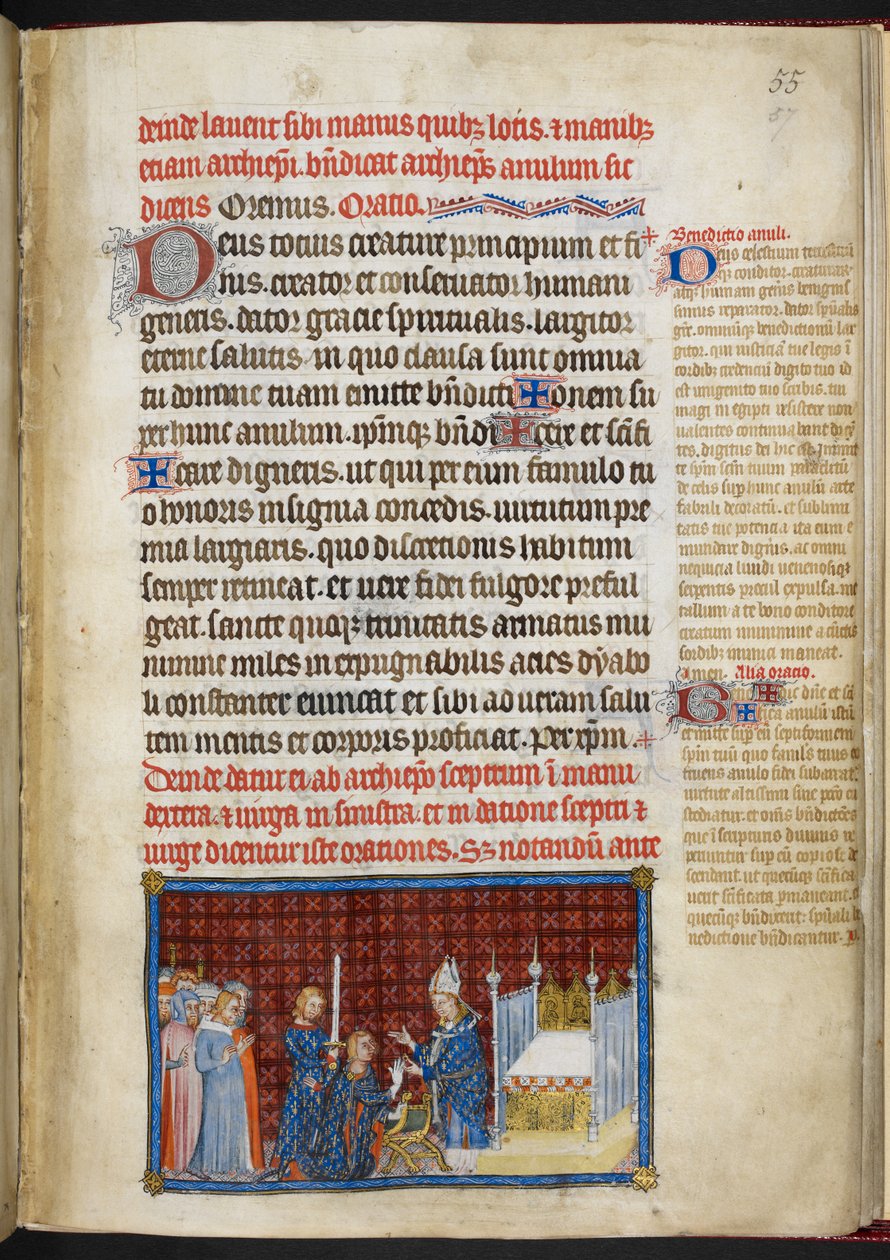 55
57
deinde lauent sibi manus quibꝫ lotis. ⁊ manibꝫ
etiam archiep̄i. bn̄dicat archiep̄s anulum sic
dicens Oremus. Oratio.
Deus tocius creature principium et fi
nis. creator et conseruator humani
generis. dator gracie spiritualis. largitor
eterne salutis. in quo clausa sunt omnia
tu domine tuam emitte bn̄dicti✠onem su
per hunc anulum. ip̄mqꝫ bn̄di✠cere et sc̄ifi
✠care digneris. ut qui per eum famulo tu
o honoris insignia concedis. uirtutum pre
mia largiaris. quo discretionis habitum
semper retineat. et uere fidei fulgore preful
geat. sancte quoqꝫ trinitatis armatus mu
nimine miles inexpugnabilis acies dyabo
li constanter euincat et sibi ad ueram salu
tem mentis et corporis proficiat. Per xp̄m.
Deinde datur ei ab archiep̄o sceptrum ī manu
dextera. ⁊ uirga in sinistra. et in datione sceptri ⁊
uirge dicentur iste orationes. Sꝫ notandū ante
Benedictio anuli.
Deus celestium terrestriū
qꝫ conditor. creaturarū
atqꝫ humani generis benignis
simus reparator. dator sp̄ualis
gr̄e. omniūqꝫ benedictionū lar
gitor. qui iusticiam tue legis ī
cordibꝫ credenciū digito tuo id
est unigenito tuo scribis. cui
magi in egipto resistere non
ualentes continuabant dicē
tes. digitus dei hic est. īmmit
te sp̄m sc̄m tuum paraclitū
de celis sup̄ hunc anulū arte
fabrili decoratū. et sublimi
tatis tue potencia ita eum e
mundare digneris. ac omni
nequicia liuidi uenenosiqꝫ
serpentis procul expulsa. me
tallum a te bono conditore
creatum immune a cunctis
sordibꝫ inimici maneat.
Amen. Alia oratio.
Bene✠dic dn̄e et sc̄i
✠fica anulū istū
et mitte sup̄ eū septiformem
sp̄m tuū quo famulꝰ tuus
fruens anulo fidei subarratꝰ
uirtute altissimi sine pctō cu
stodiatur. et om̄s bn̄dictōes
que ī scripturis diuinis re
periuntur sup̄ eū copiose de
scendant. ut quecūqꝫ sc̄ifica
uerit sc̄ificata p̄maneant.
quecūqꝫ bn̄dixerit. sp̄uali be
nedictione bn̄dicantur. P.